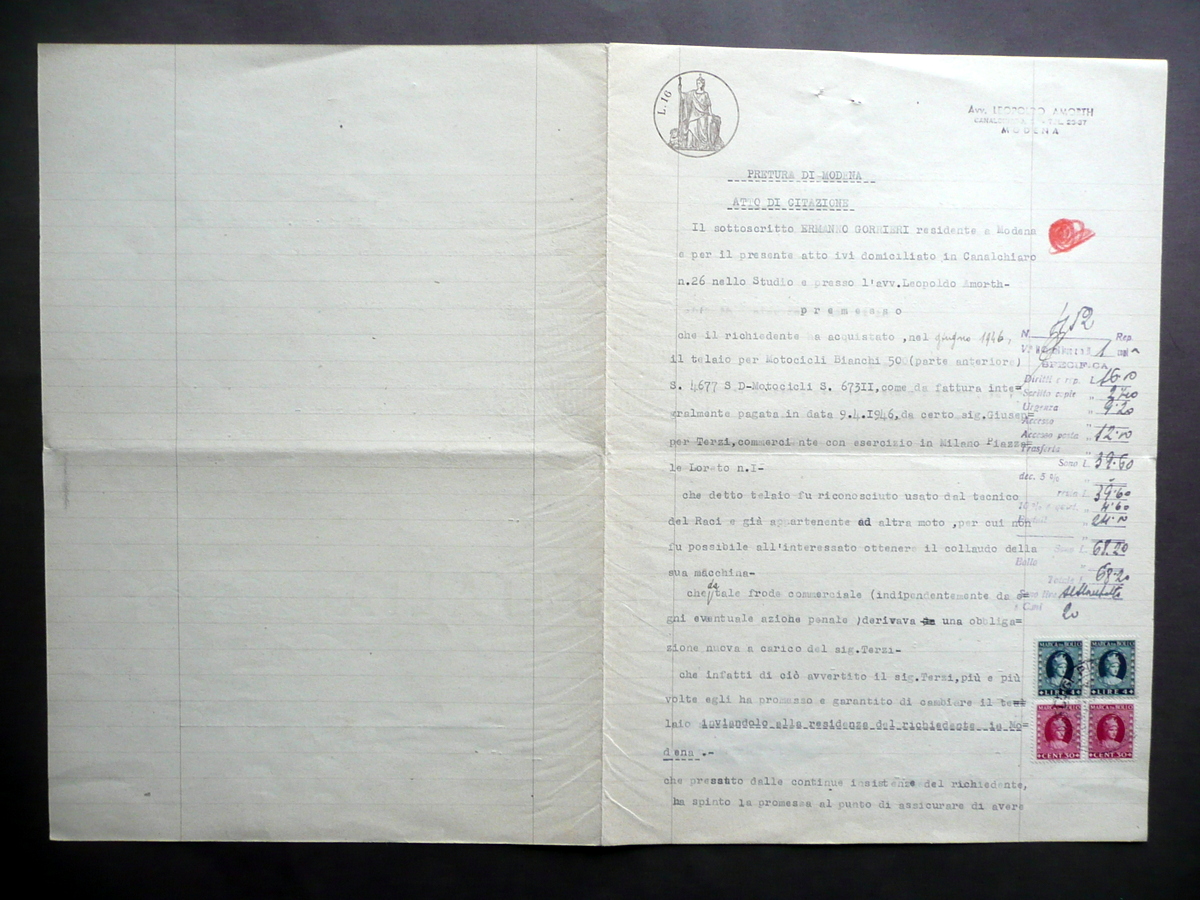 L. 16
Avv. LEOPOLDO AMORTH
MODENA
PRETURA DI MODENA
ATTO DI CITAZIONE
Il sottoscritto ERMANNO GORRIERI residente a Modena
e per il presente atto ivi domiciliato in Canalchiaro
n.26 nello Studio e presso l'avv.Leopoldo Amorth-
p r e m e s s o
che il richiedente ha acquistato ,nel giugno 1946,
il telaio per Motocicli Bianchi 500(parte anteriore)
S. 4677 S D-Motocicli S. 67311,come da fattura inte=
gralmente pagata in data 9.4.1946,da certo sig.Giusep=
per Terzi,commerciante con esercizio in Milano Piazza=
le Loreto n.I-
che detto telaio fu riconosciuto usato dal tecnico
del Raci e già appartenente ad altra moto ,per cui non
fu possibile all'interessato ottenere il collaudo della
sua macchina-
che da tale frode commerciale (indipendentemente da o=
gni eventuale azione penale )derivava una obbliga=
zione nuova a carico del sig.Terzi-
che infatti di ciò avvertito il sig.Terzi,più e più
volte egli ha promesso e garantito di cambiare il te=
laio inviandolo alla residenza del richiedente in Mo=
dena .-
che pressato dalle continue insistenze del richiedente,
ha spinto la promessa al punto di assicurare di avere
N. 752 Rep.
SPECIFICA
Diritti e rep. L.
Scritto copie "
Urgenza " 9.20
Accesso "
Accesso posta " 12.10
Trasferta "
Sono L. 39.60
dec. 5 %
39.60
4.60
24.10
Sono L. 68.20
Bollo "
Totale L. 68.20
20
MARCA DA BOLLO
LIRE 4
MARCA DA BOLLO
LIRE 4
MARCA DA BOLLO
CENT 50
MARCA DA BOLLO
CENT 50